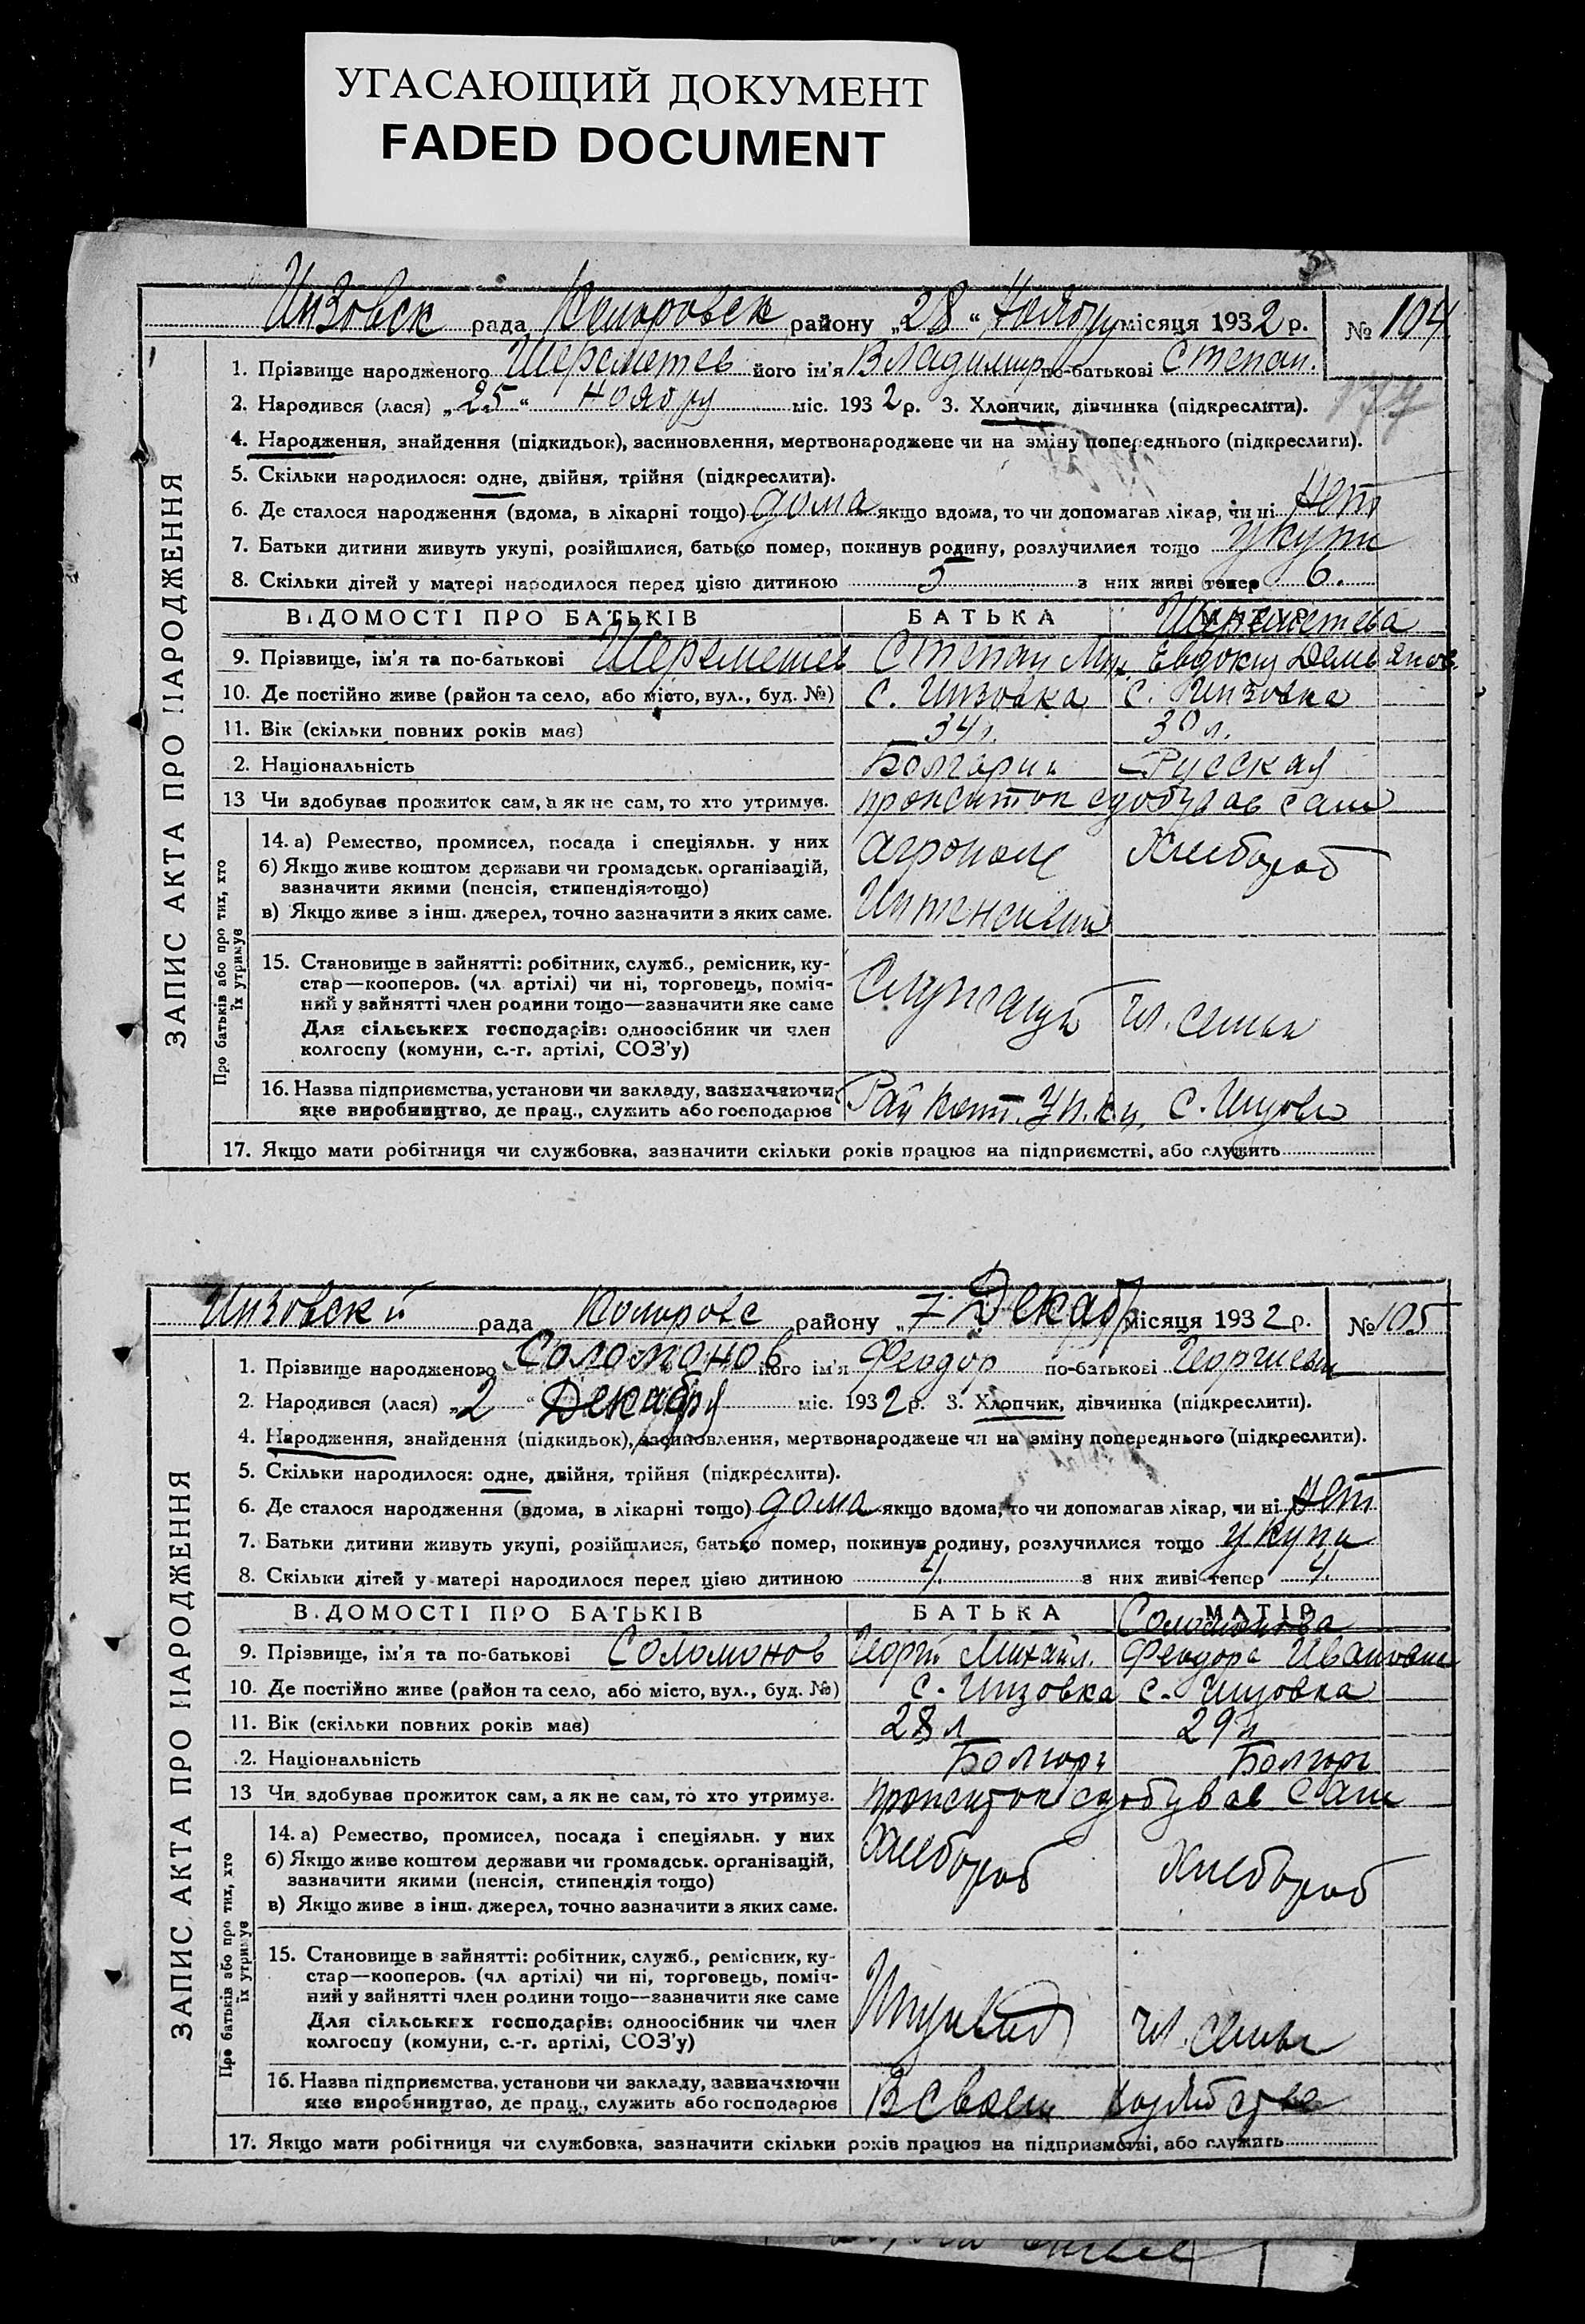 УГАСАЮЩИЙ ДОКУМЕНТ
FADED DOCUMENT
Инзовск рада Комаровск району „28“ Ноябру місяця 1932 р. № 104
1. Прізвище народженого Шереметев його ім'я Владимир по-батькові Степан.
2. Народився (лася) „25“ Ноябру міс. 1932 р. 3. Хлопчик, дівчинка (підкреслити). 177
4. Народження, знайдення (підкидьок), засиновлення, мертвонароджене чи на зміну попереднього (підкреслити).
5. Скільки народилося: одне, двійня, трійня (підкреслити).
6. Де сталося народження (вдома, в лікарні тощо) дома якщо вдома, то чи допомагав лікар, чи ні нет
7. Батьки дитини живуть укупі, розійшлися, батько помер, покинув родину, розлучилися тощо укупи
8. Скільки дітей у матері народилося перед цією дитиною 5 з них живі тепер 6.
ВІДОМОСТІ ПРО БАТЬКІВ БАТЬКА МАТІР
Шереметева
9. Прізвище, ім'я та по-батькові Шереметев Степан Мих. Евдокия Демьянов.
10. Де постійно живе (район та село, або місто, вул., буд. №) с. Инзовка с. Инзовка
11. Вік (скільки повних років має) 34 л. 30 л.
2. Національність Болгарин Русская
13 Чи здобуває прожиток сам, а як не сам, то хто утримує. прожиток сдобувае сам
14. а) Ремество, промисел, посада і спеціяльн. у них агроном Хлебороб
б) Якщо живе коштом держави чи громадськ. організацій,
зазначити якими (пенсія, стипендія тощо)
в) Якщо живе з інш. джерел, точно зазначити з яких саме.
15. Становище в зайнятті: робітник, служб., ремісник, ку-
стар—кооперов. (чл. артілі) чи ні, торговець, поміч-
ний у зайнятті член родини тощо—зазначити яке саме Служащий чл. семьи
Для сільських господарів: одноосібник чи член
колгоспу (комуни, с.-г. артілі, СОЗ'у)
16. Назва підприємства, установи чи закладу, зазначаючи
яке виробництво, де прац., служить або господарює с. Инзовка
17. Якщо мати робітниця чи службовка, зазначити скільки років працює на підприємстві, або служить
ЗАПИС АКТА ПРО НАРОДЖЕННЯ
Про батьків або про тих, хто
їх утримує
Инзовский рада Комаровс району „7 Декабр місяця 1932 р. № 105
1. Прізвище народженого Соломонов його ім'я Феодор по-батькові Георгиевич
2. Народився (лася) „2“ Декабря міс. 1932 р. 3. Хлопчик, дівчинка (підкреслити).
4. Народження, знайдення (підкидьок), засиновлення, мертвонароджене чи на зміну попереднього (підкреслити).
5. Скільки народилося: одне, двійня, трійня (підкреслити).
6. Де сталося народження (вдома, в лікарні тощо) дома якщо вдома, то чи допомагав лікар, чи ні нет
7. Батьки дитини живуть укупі, розійшлися, батько помер, покинув родину, розлучилися тощо укупи
8. Скільки дітей у матері народилося перед цією дитиною 4. з них живі тепер 4.
ВІДОМОСТІ ПРО БАТЬКІВ БАТЬКА МАТІР
Соломонова
9. Прізвище, ім'я та по-батькові Соломонов Георгий Михайл. Феодора Ивановна
10. Де постійно живе (район та село, або місто, вул., буд. №) с. Инзовка с. Инзовка
11. Вік (скільки повних років має) 28 л 29 л
2. Національність Болгар Болгар
13 Чи здобуває прожиток сам, а як не сам, то хто утримує. прожиток сдобувае сам
14. а) Ремество, промисел, посада і спеціяльн. у них Хлебороб Хлебороб
б) Якщо живе коштом держави чи громадськ. організацій,
зазначити якими (пенсія, стипендія тощо)
в) Якщо живе в інш. джерел, точно зазначити з яких саме.
15. Становище в зайнятті: робітник, служб., ремісник, ку-
стар—кооперов. (чл. артілі) чи ні, торговець, поміч-
ний у зайнятті член родини тощо—зазначити яке саме чл. семьи
Для сільських господарів: одноосібник чи член
колгоспу (комуни, с.-г. артілі, СОЗ'у)
16. Назва підприємства, установи чи закладу, зазначаючи
яке виробництво, де прац., служить або господарює В своем
17. Якщо мати робітниця чи службовка, зазначити скільки років працює на підприємстві, або служить
ЗАПИС АКТА ПРО НАРОДЖЕННЯ
Про батьків або про тих, хто
їх утримує